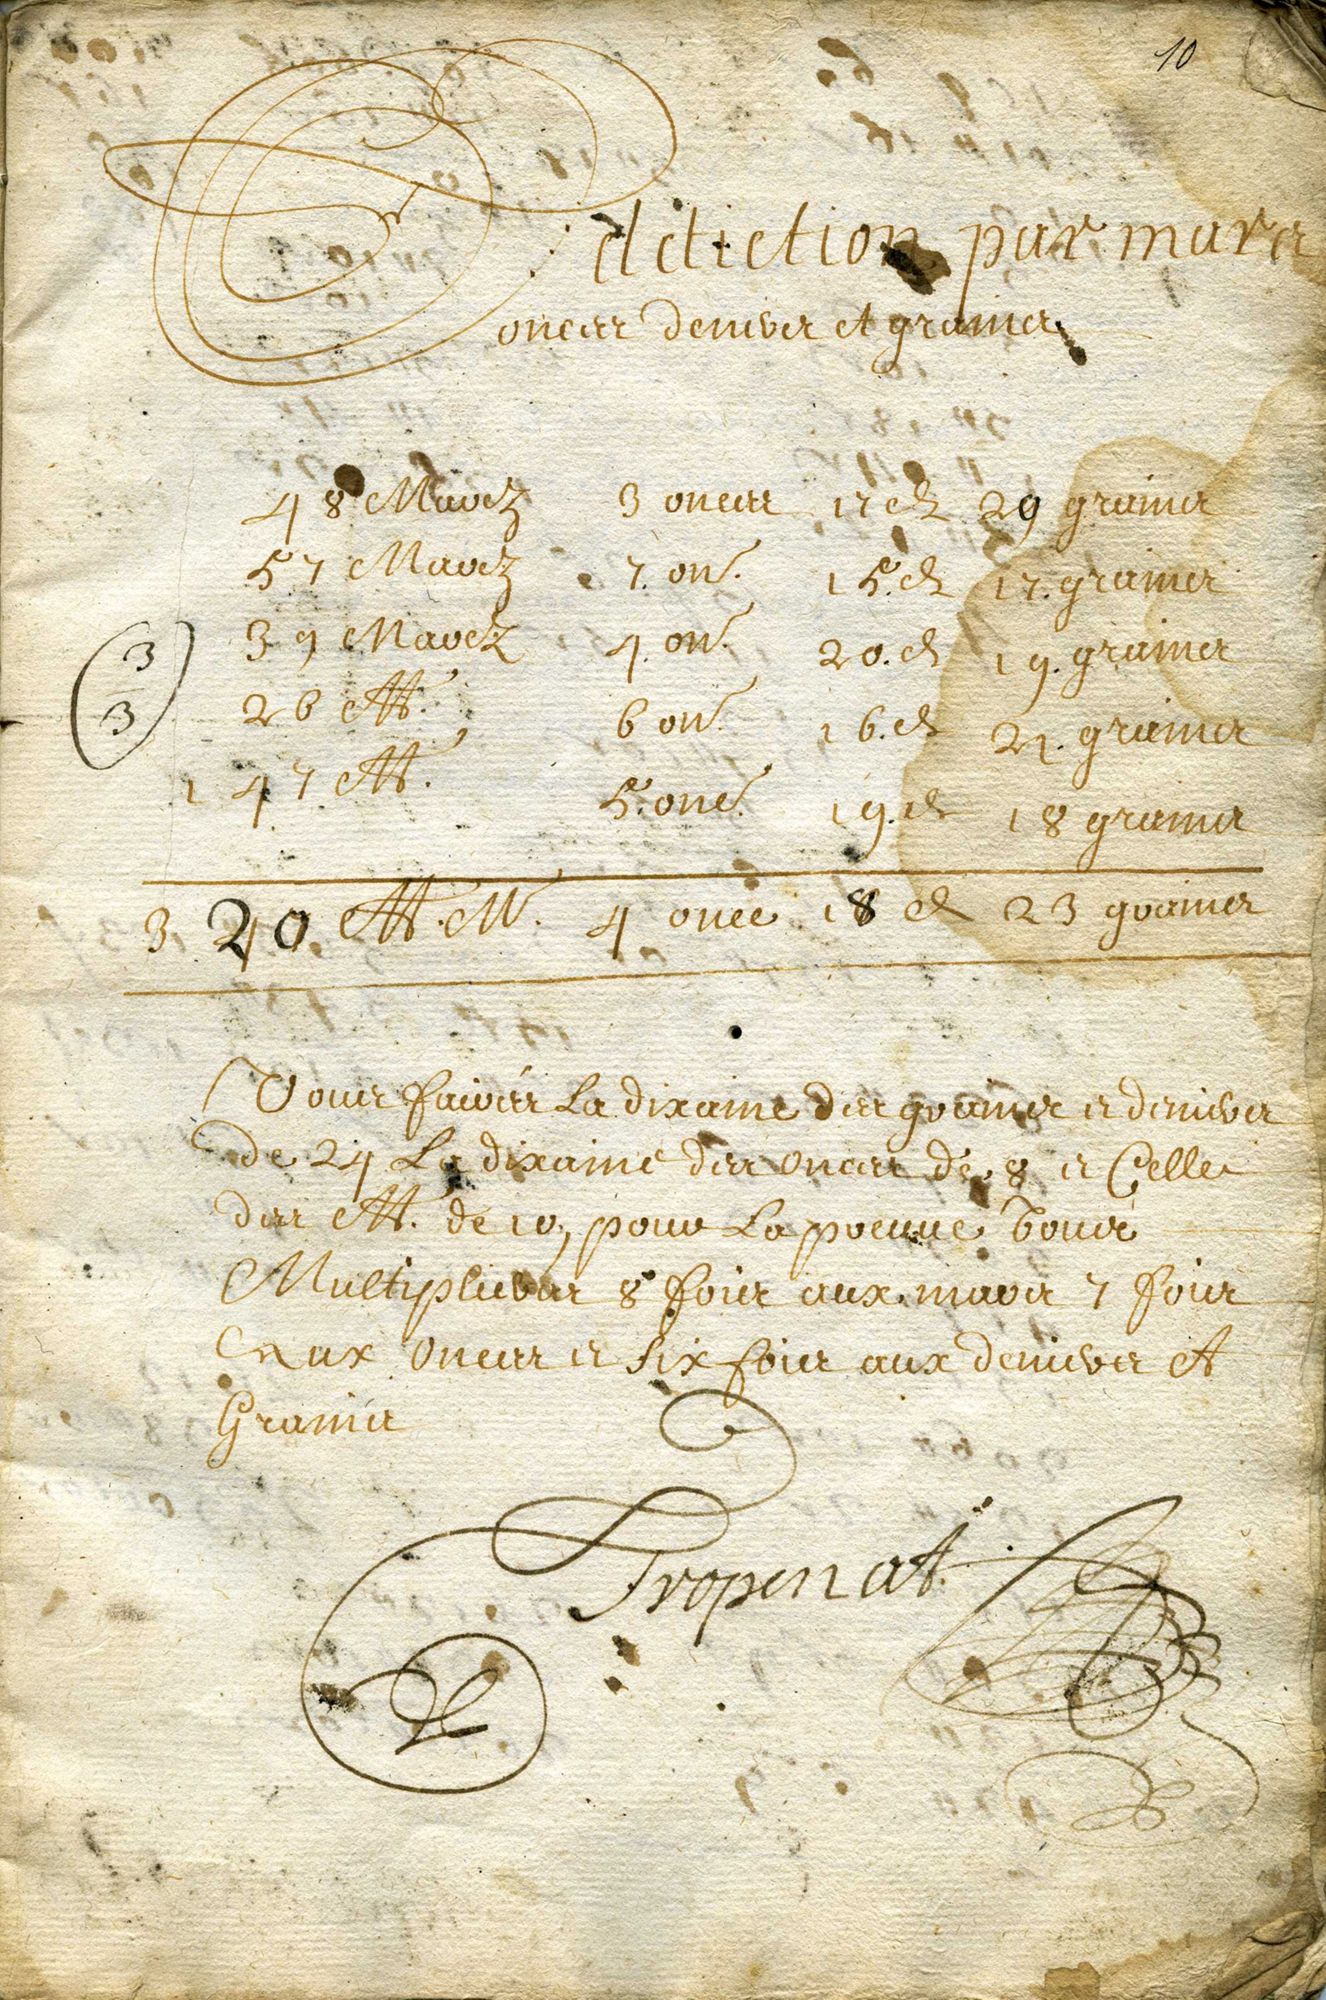 10
Adietietion par marcs
onces deniers et grains
48 Marcz 3 onces 17 d 29 grains
57 Marcz 7. on. 15. d 17. grains
39 Marcz 4. on. 20. d 19. grains
26 M. 6 on. 16. d 21. grains
147 M. 5. onc. 19. d 18 grains
3
3
320 M. 4 once 18 d 23 grains
Vous faires La dixaine des grains es deniers
de 24 La dixaine des onces de 8 es Celle
des M. de 10, pour La preuve vous
Multiplieres 8 fois aux marcs 7 fois
aux onces es six fois aux deniers et
Grains
Tropenat